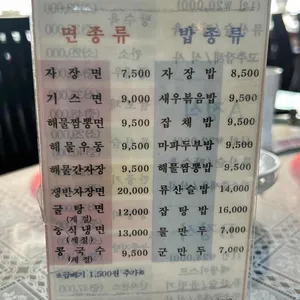 면종류
자장면 7,500
기스면 9,000
해물짬뽕면 9,500
해물우동 9,500
해물간자장 9,500
쟁반자장면 20,000
굴탕면 12,000
(계절)
중식냉면 13,000
(계절)
콩국수 9,500
(계절)
※곱배기 1,500원 추가※
밥종류
자장밥 8,500
새우볶음밥 9,500
잡채밥 9,500
마파두부밥 9,500
해물짬뽕밥 9,500
류산슬밥 14,000
잡탕밥 16,000
물만두 7,000
군만두 7,000